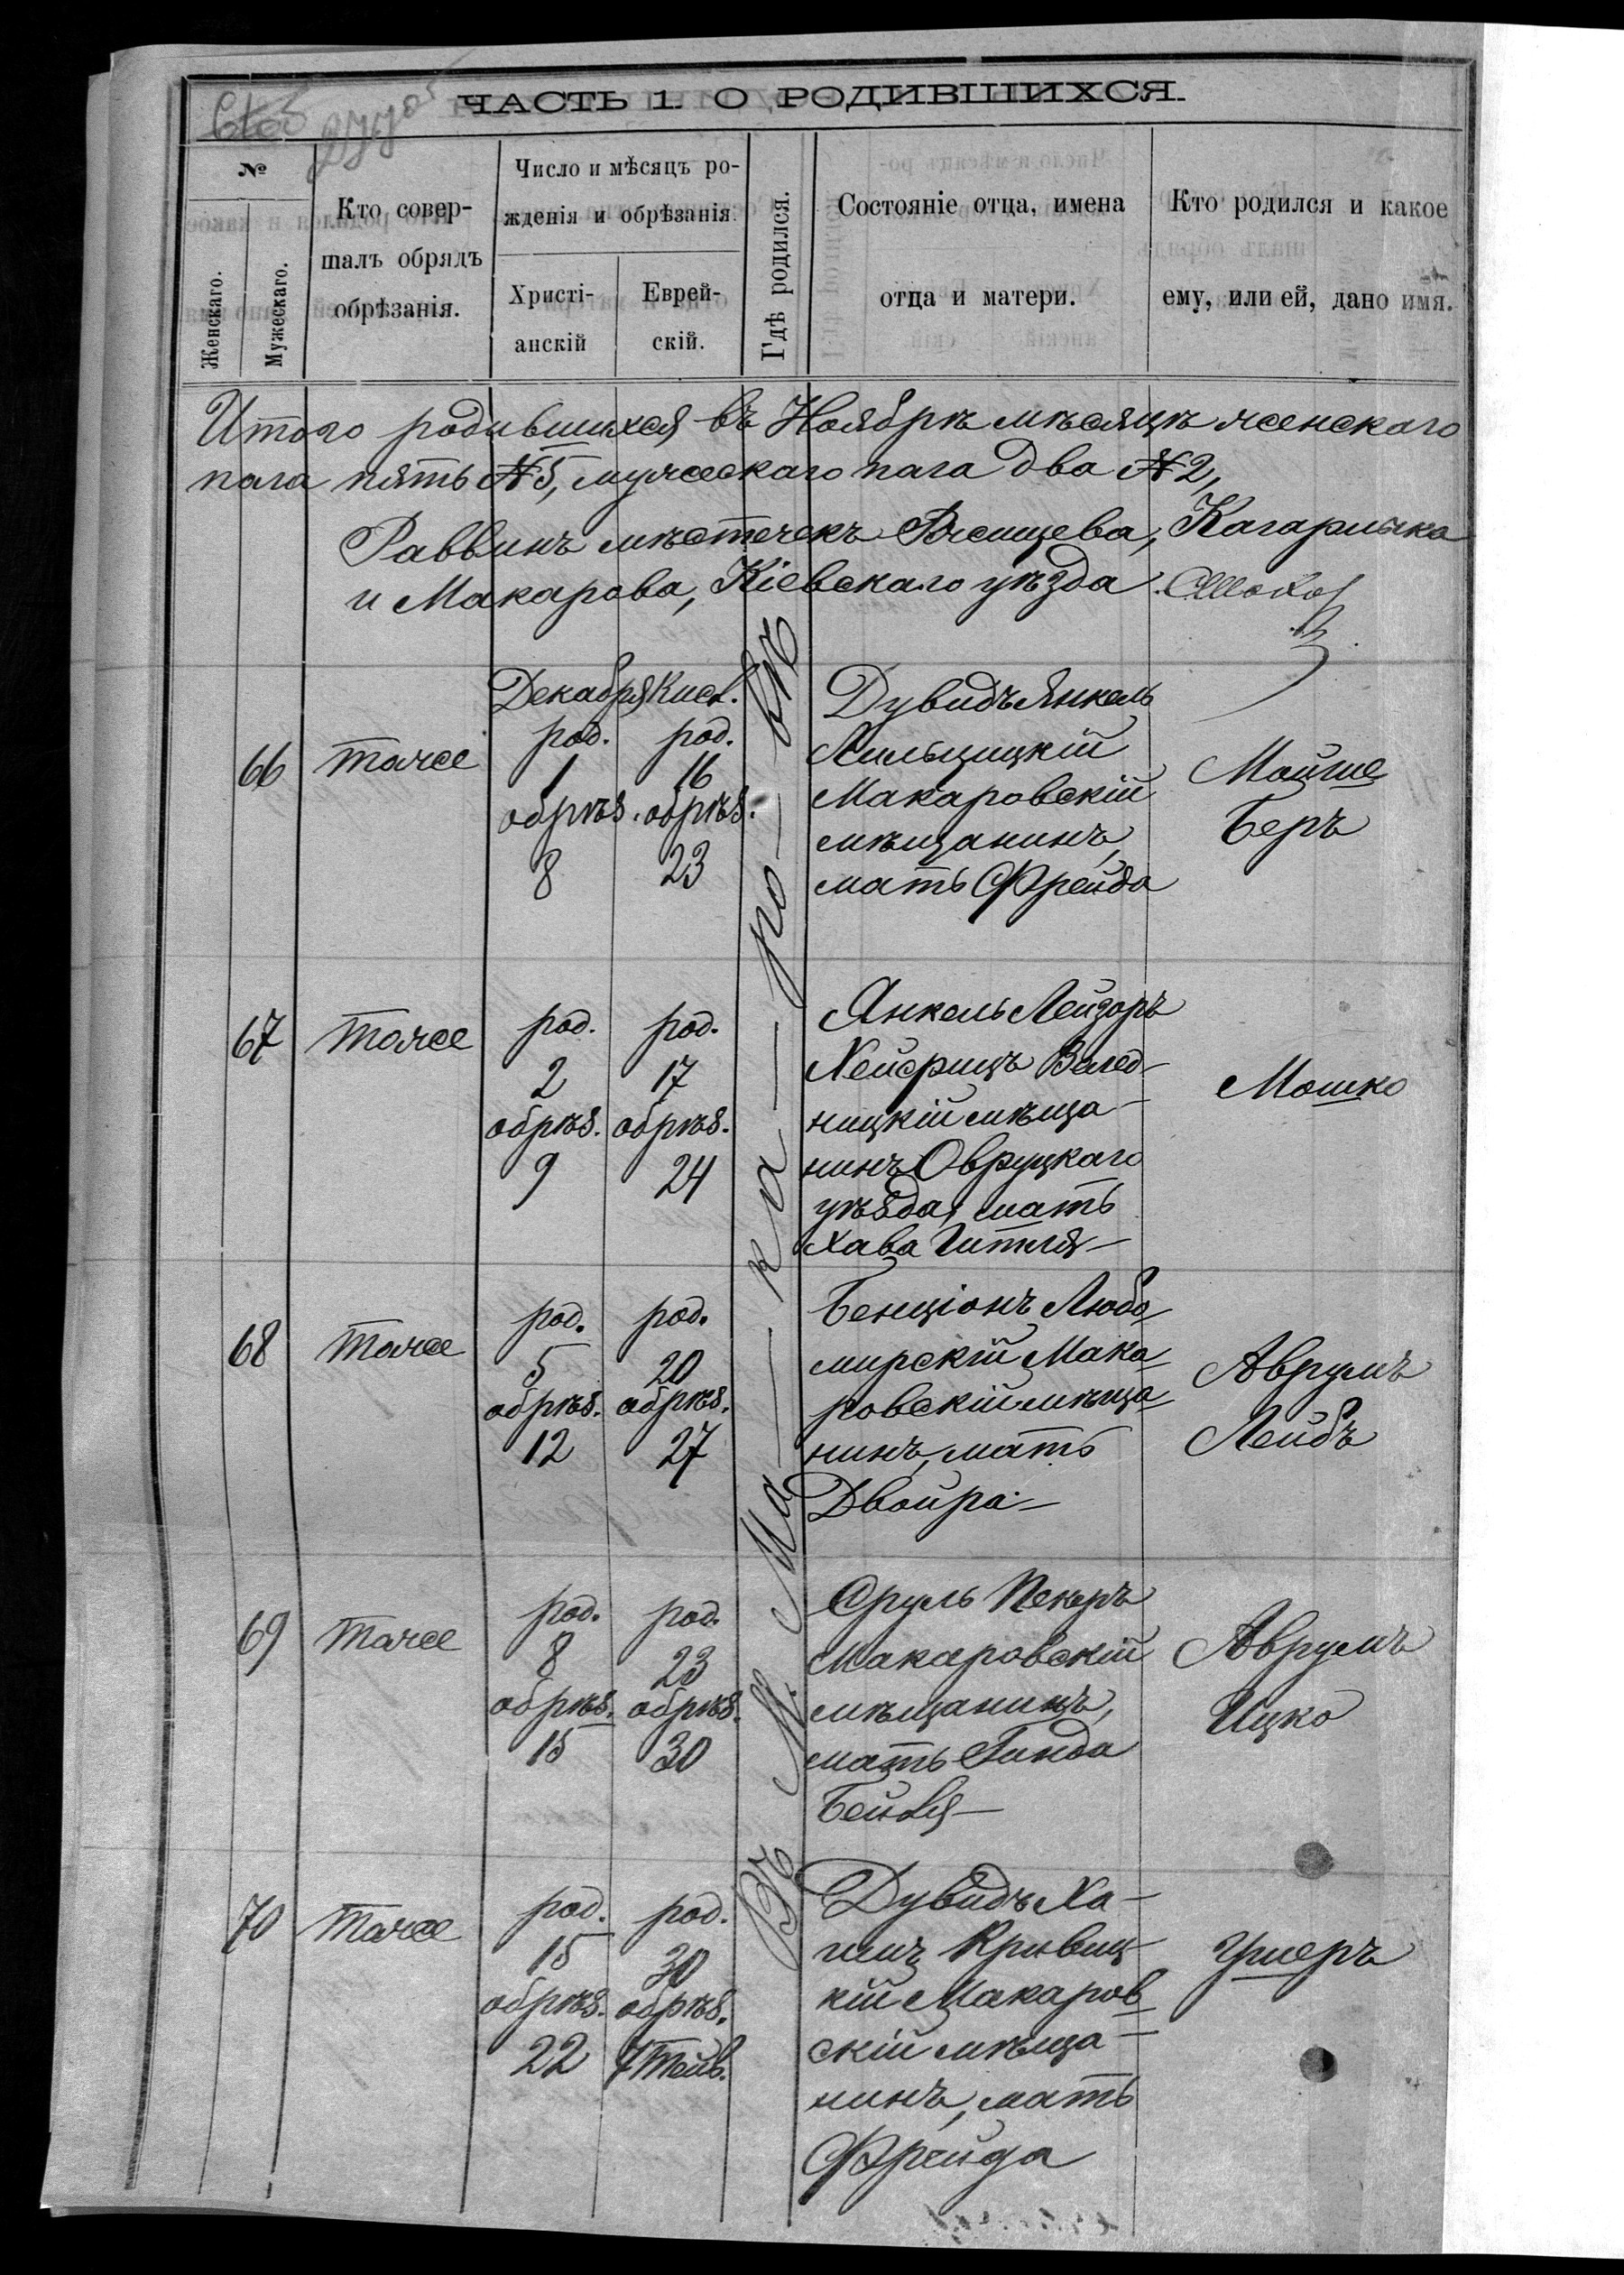 ЧАСТЬ 1. О РОДИВШИХСЯ.
№
Женскаго.
Мужескаго.
Кто совер-
шалъ обрядъ
обрѣзанія.
Число и мѣсяцъ ро-
жденія и обрѣзанія.
Христі-
анскій
Еврей-
скій.
Гдѣ родился.
Состояніе отца, имена
отца и матери.
Кто родился и какое
ему, или ей, дано имя.
Итого родившихся въ Ноябрѣ мѣсяцѣ женскаго
пола пять № 5, мужескаго пола два № 2,
Раввинъ мѣстечекъ Ржищева, Кагарлыка
и Макарова, Кіевскаго уѣзда
Въ М. Ма-ка-ро-вѣ
Декабря Кисл.
66 тоже
род. род.
1 16
обрѣз. обрѣз.
8 23
Дувидъ Янкель
Макаровскій
мѣщанинъ,
мать Фрейда
Мойше
Беръ
67 тоже
род. род.
2 17
обрѣз. обрѣз.
9 24
Янкель Лейзоръ
Велед-
ницкій мѣща-
нинъ Овруцкаго
уѣзда, мать
Хава Гитля
Мошко
68 тоже
род. род.
5 20
обрѣз. обрѣз.
12 27
Бенціонъ Любо-
мирскій Мака-
ровскій мѣща-
нинъ, мать
Двойра
Аврумъ
Лейбъ
69 тоже
род. род.
8 23
обрѣз. обрѣз.
15 30
Сруль Пекеръ
Макаровскій
мѣщанинъ,
мать Гинда
Бейля
Аврумъ
Ицко
70 тоже
род. род.
15 30
обрѣз. обрѣз.
22 7 Тейв.
Дувидъ Ха-
имъ Кривиц-
кій Макаров-
скій мѣща-
нинъ, мать
Фрейда
Ушеръ